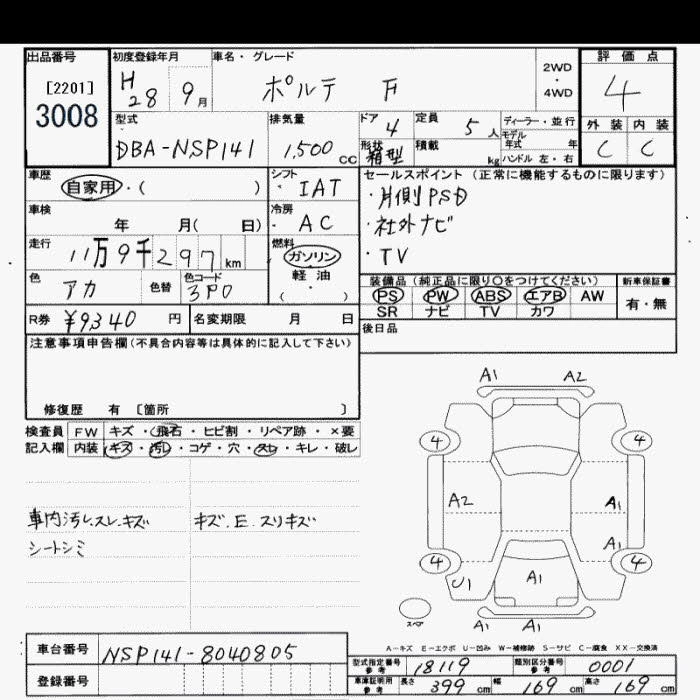 出品番号 初度登録年月 車名・グレード 評価点
[2201] 3008 H28 9月 ポルテ F 2WD・4WD 4
型式 排気量 ドア 定員 ディーラー・並行 外装 内装
DBA-NSP141 1,500cc 4 5人 モデル年式 年 C C
形状 箱型 積載 kg ハンドル 左・右
車歴 シフト セールスポイント (正常に機能するものに限ります)
自家用・( ) ・IAT ・片側PSD
車検 冷房 ・社外ナビ
年 月( 日) ・AC ・TV
走行 燃料
11万9千297km ガソリン
軽油
・( )
色 色替 色コード 装備品(純正品に限り○をつけてください) 新車保証書
アカ 3P0 PS PW ABS エアB AW 有・無
SR ナビ TV カワ
R券 ¥9340円 名変期限 月 日 後日品
注意事項申告欄(不具合内容等は具体的に記入して下さい)
修復歴 有 [箇所 ]
検査員 FW キズ・飛石・ヒビ割・リペア跡・×要
記入欄 内装 キズ・汚レ・コゲ・穴・スレ・キレ・破レ
車内汚レ.スレ.キズ キズ.E.スリキズ
シートシミ
A1 A2
4 4
A2 A1
A1
4 4
U1 A1
A1 A1
スペア
A-キズ E-エクボ U-凹み W-補修跡 S-サビ C-腐食 XX-交換済
車台番号 NSP141-8040805 型式指定番号 参考 18119 類別区分番号 参考 0001
登録番号 車庫証明用 参考 長さ 399cm 幅 169cm 高さ 169cm